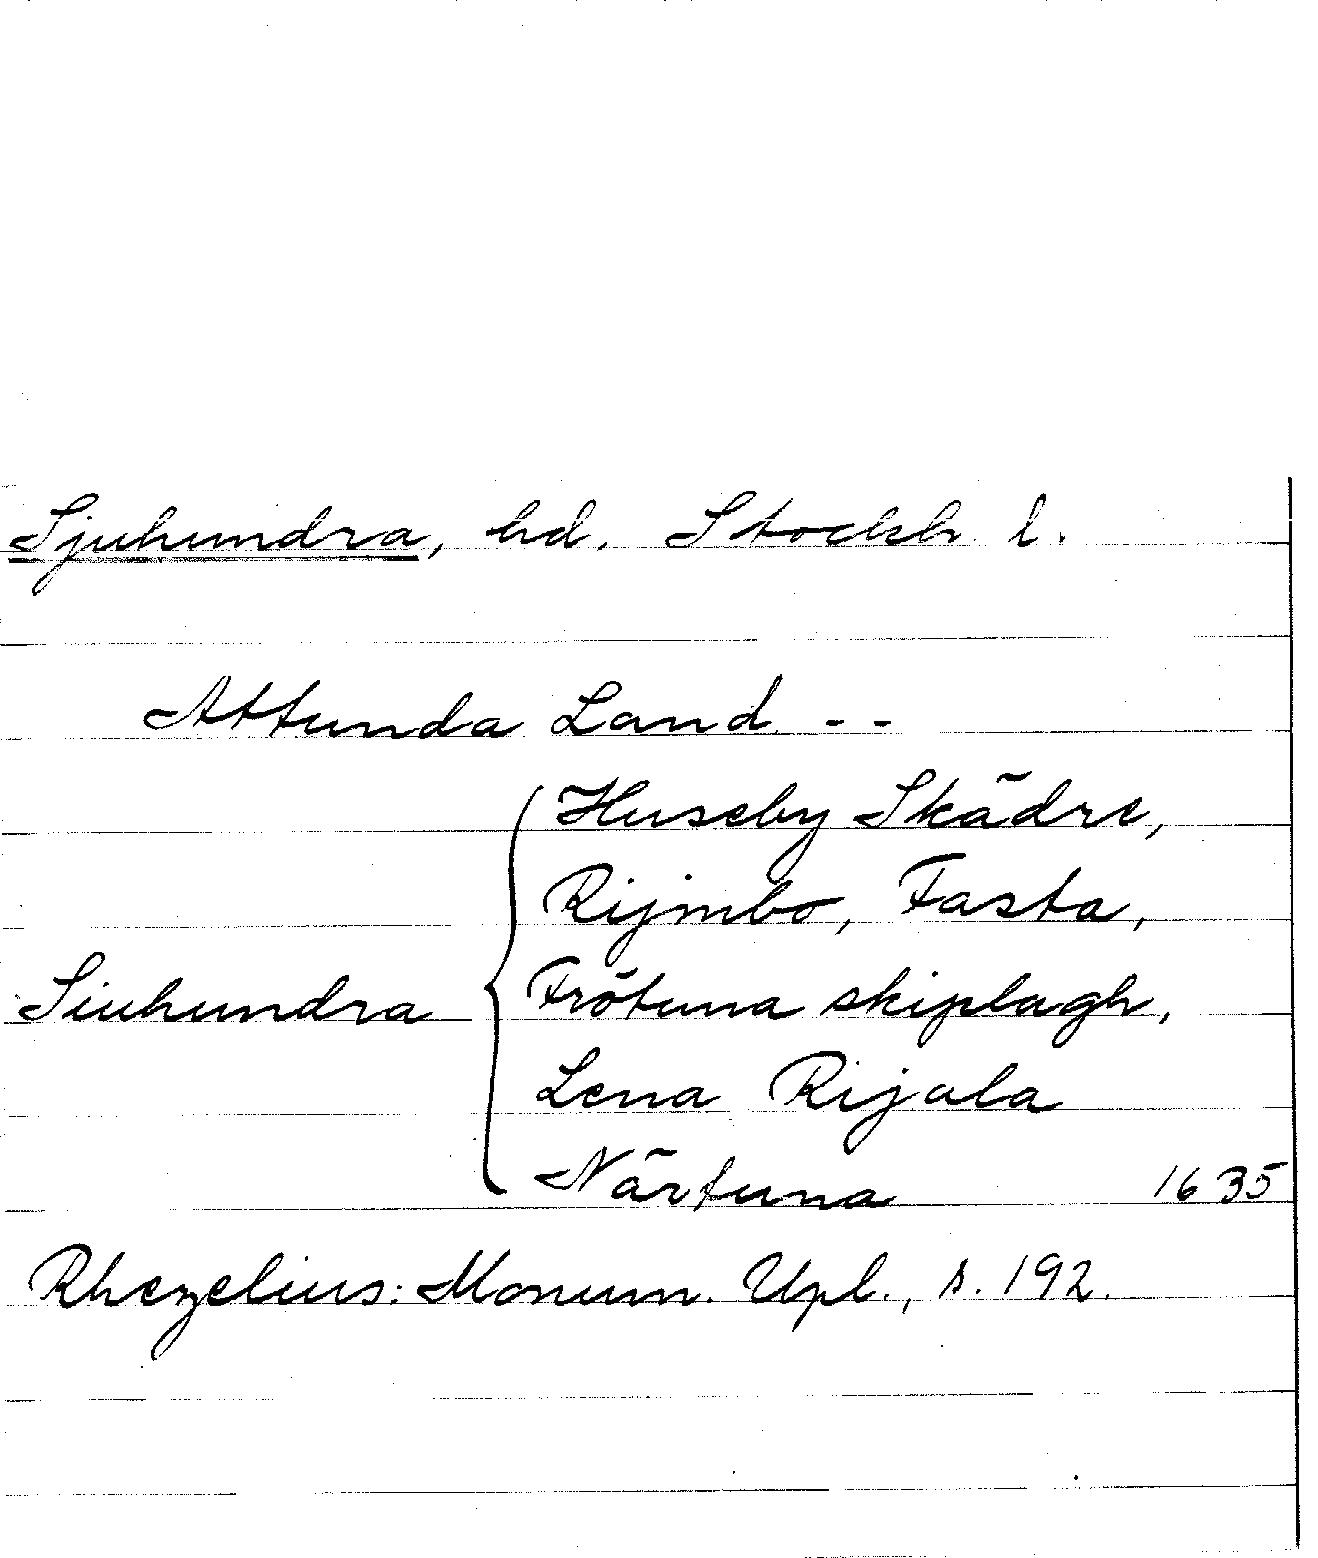 Sjuhundra, hd. Stockh. l.
Attunda Land. --
Siuhundra { Huseby Skãdre,
Rijmbo, Fasta,
Frõtuna skiplagh,
Lena Rijala
Nãrtuna 1635
Rhezelius: Monum. Upl., s. 192.